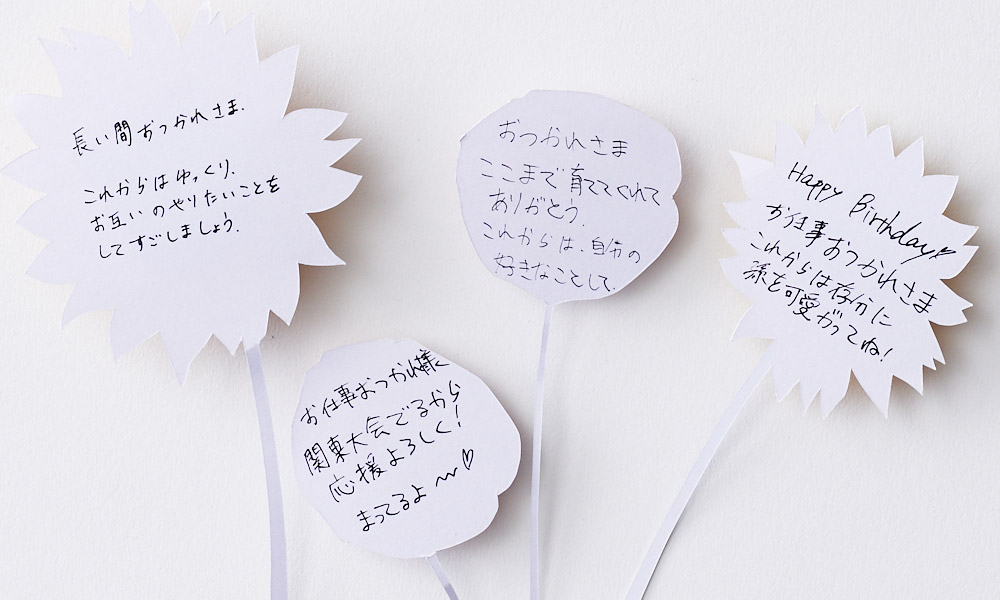 長い間おつかれさま.
これからはゆっくり、
お互いのやりたいことを
してすごしましょう.
おつかれさま
ここまで育ててくれて
ありがとう.
これからは、自分の
好きなことして.
お仕事おつかれ様〜
関東大会でるから
応援よろしく!
まってるよ〜♡
Happy Birthday♡
お仕事おつかれさま
これからは存分に
を可愛がってね!